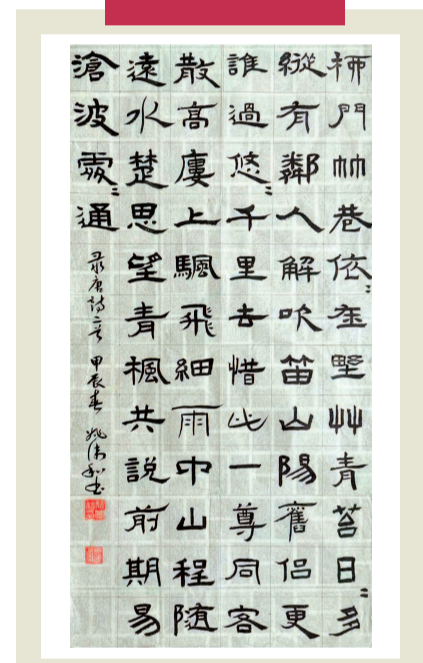 柳門竹巷依〻在野艸青苔日〻多
縱有鄰人解吹笛山陽舊侶更
誰過悠〻千里去惜此一尊同客
散高廔上颿飛細雨中山程隨
遠水楚思望青楓共說前期易
滄波處〻通
唐詩二首 甲辰春 书